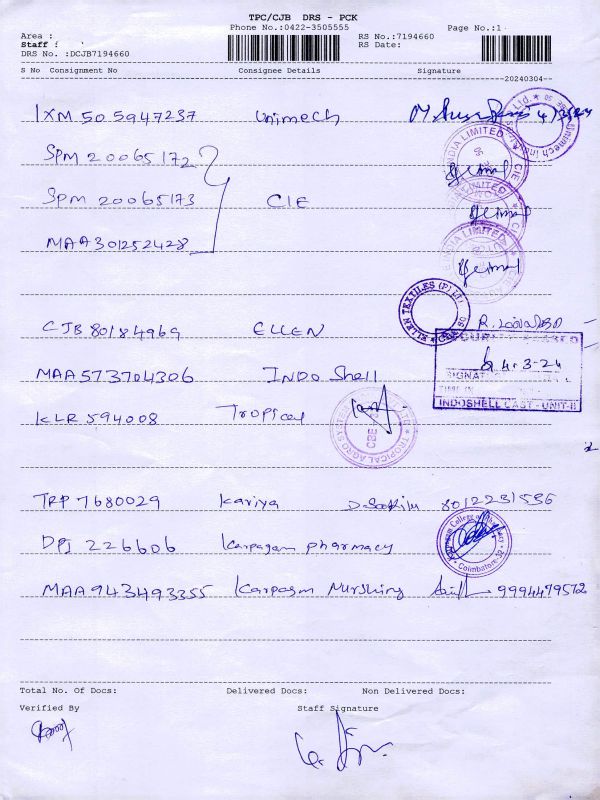 TPC/CJB DRS - PCK
Phone No.:0422-3505555
Area :
Staff :
DRS No. :DCJB7194660
RS No.:7194660
RS Date:
Page No.:1
S No Consignment No Consignee Details Signature
20240304
IXM 505947237 Unimech 4/3/24
SPM 20065172
SPM 20065173 CIE
MAA301252428
CJB 80184969 ELLEN
MAA573704306 INDO Shell 4.3-24
INDOSHELL CAST - UNIT-II
KLR 594008 Tropical
TRP 7680029 Kariya 8012231536
DPI 226606 Karpagam pharmacy
Coimbatore-32
MAA943493355 Karpagm Nurshing 9994479572
Total No. Of Docs: Delivered Docs: Non Delivered Docs:
Verified By Staff Signature